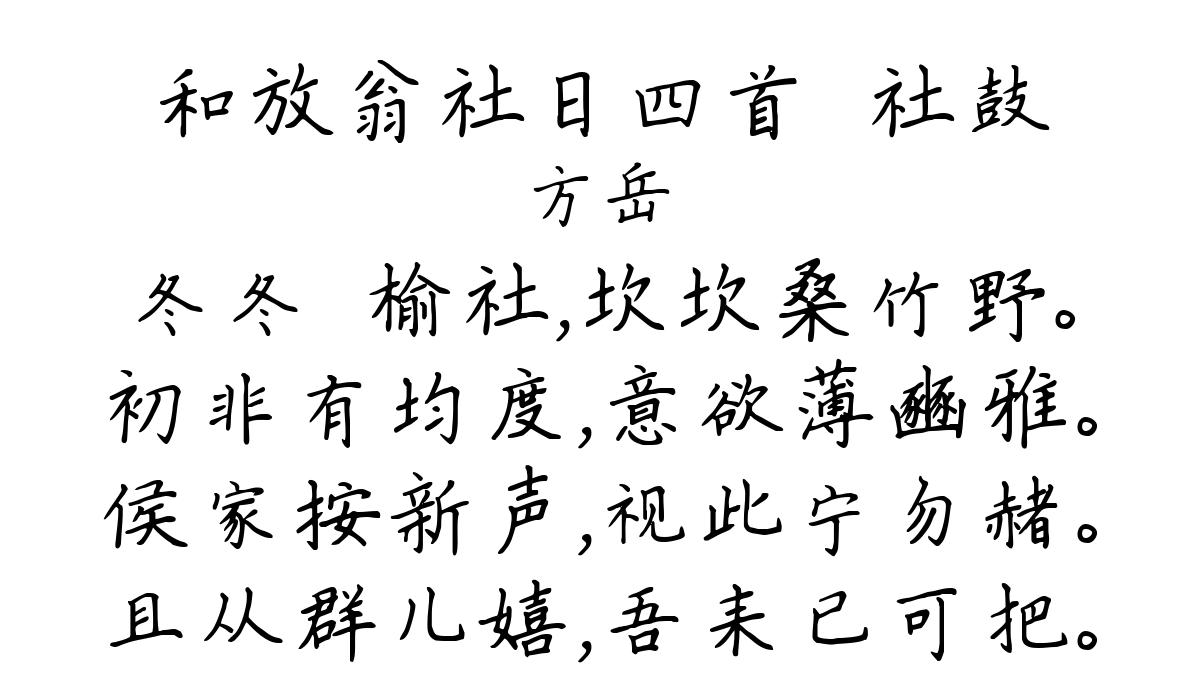 和放翁社日四首 社鼓
方岳
冬冬 榆社,坎坎桑竹野。
初非有均度,意欲薄豳雅。
侯家按新声,视此宁勿赭。
且从群儿嬉,吾耒已可把。